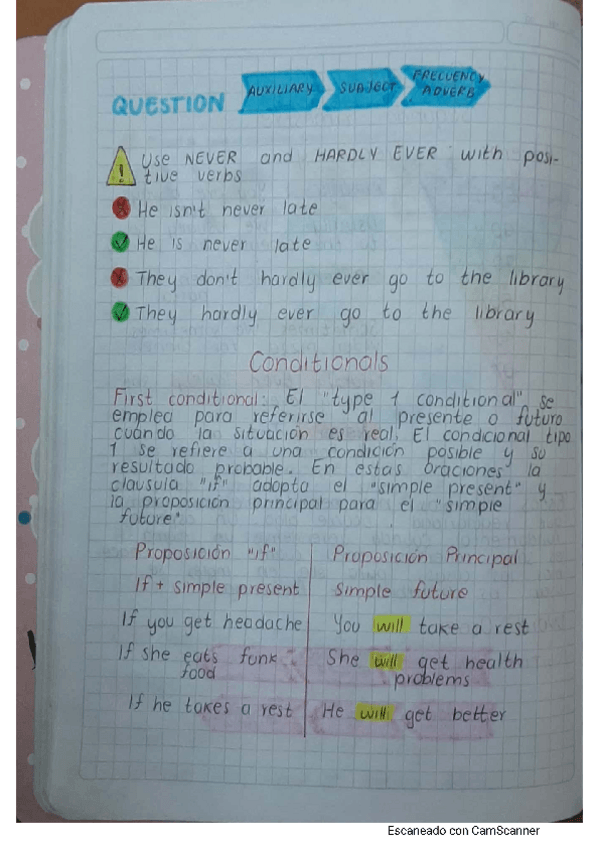 QUESTION AUXILIARY SUBJECT FRECUENCY ADVERB
Use NEVER and HARDLY EVER with posi-
tive verbs
He isn't never late
He is never late
They don't hardly ever go to the library
They hardly ever go to the library
Conditionals
First conditional: El "type 1 conditional" se
emplea para referirse al presente o futuro
cuando la situación es real. El condicional tipo
1 se refiere a una condición posible y su
resultado probable. En estas oraciones la
clausula "if" adopta el "simple present" y
la proposición principal para el "simple
future"
Proposición "if" Proposición Principal
If + simple present Simple future
If you get headache You will take a rest
If she eats funk She will get health
food problems
If he takes a rest He will get better
Escaneado con CamScanner